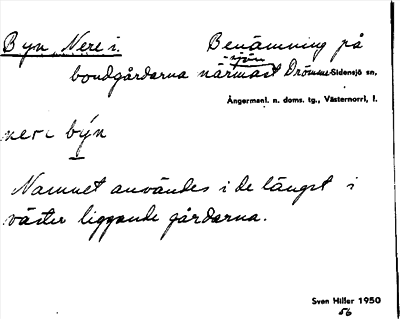 Byn, Nere i.   Benämning på
bondgårdarna närmast sjön Drömme Sidensjö sn,
Ångermanl. n. doms. tg., Västernorrl, l.
neri býn
Namnet användes i de längst i
väster liggande gårdarna.
Sven Hiller 1950
56